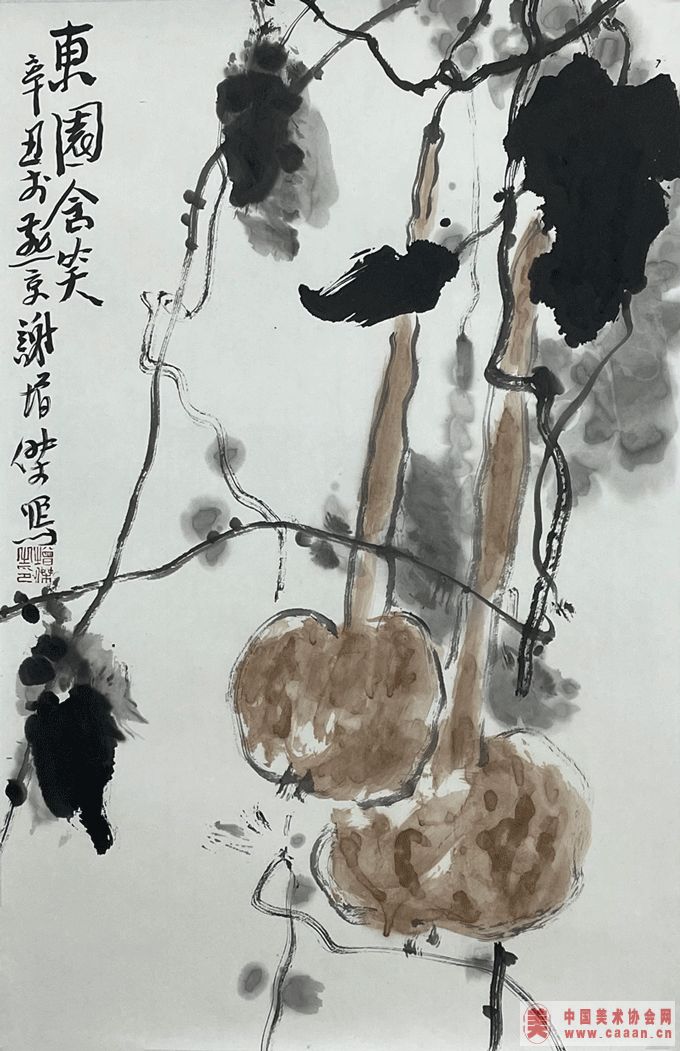 東園含笑
辛丑於燕京謝增傑寫
增傑之印
美
中国美术协会网
www.caaan.cn